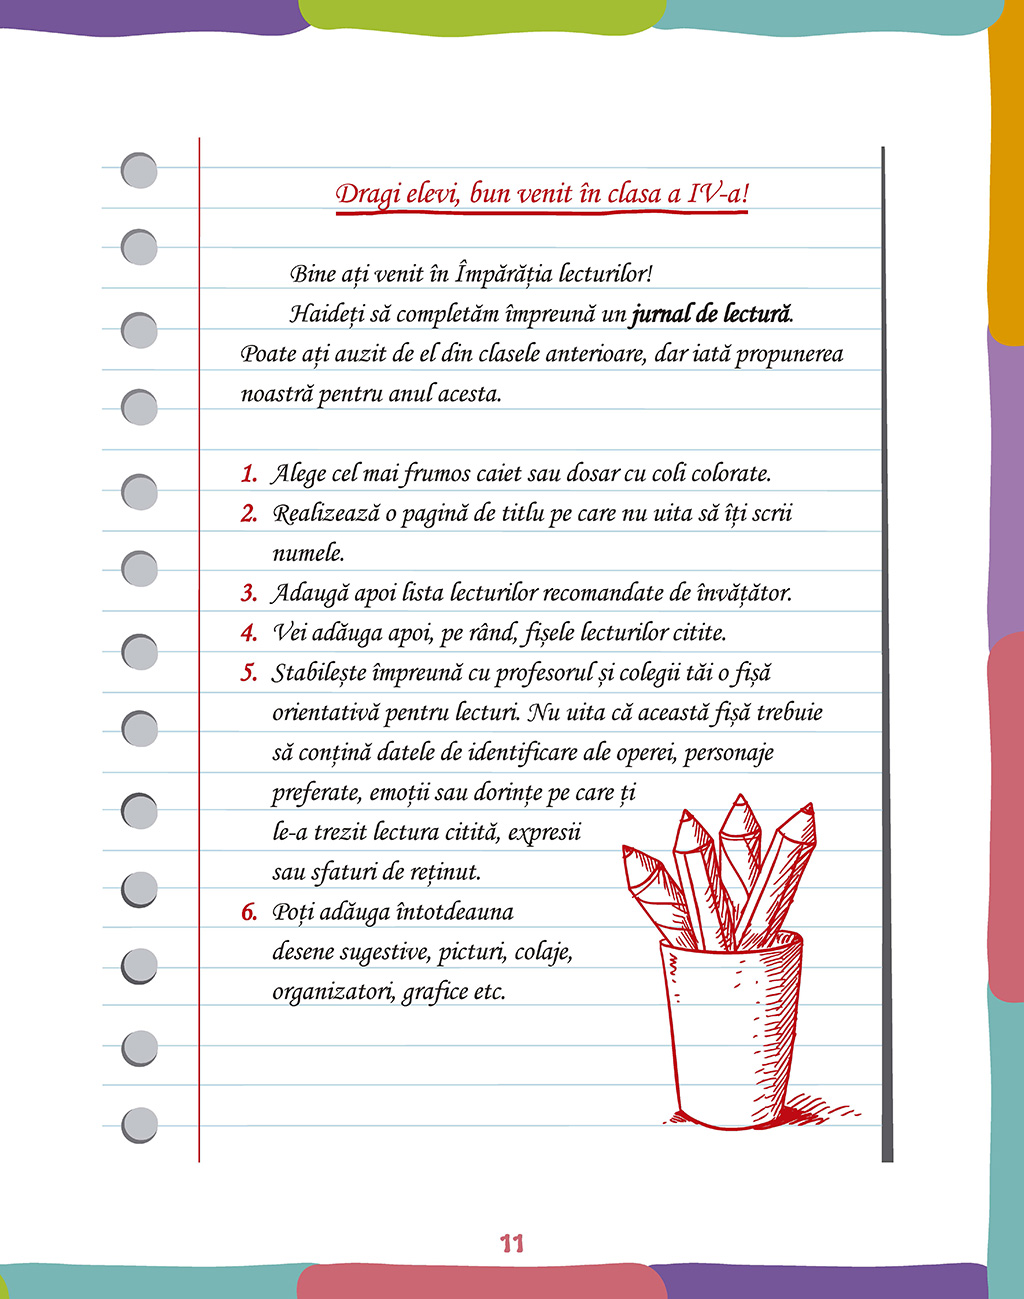 Dragi elevi, bun venit în clasa a IV-a!
Bine ați venit în Împărăția lecturilor!
Haideți să completăm împreună un jurnal de lectură.
Poate ați auzit de el din clasele anterioare, dar iată propunerea
noastră pentru anul acesta.
1. Alege cel mai frumos caiet sau dosar cu coli colorate.
2. Realizează o pagină de titlu pe care nu uita să îți scrii
numele.
3. Adaugă apoi lista lecturilor recomandate de învățător.
4. Vei adăuga apoi, pe rând, fișele lecturilor citite.
5. Stabilește împreună cu profesorul și colegii tăi o fișă
orientativă pentru lecturi. Nu uita că această fișă trebuie
să conțină datele de identificare ale operei, personaje
preferate, emoții sau dorințe pe care ți
le-a trezit lectura citită, expresii
sau sfaturi de reținut.
6. Poți adăuga întotdeauna
desene sugestive, picturi, colaje,
organizatori, grafice etc.
11